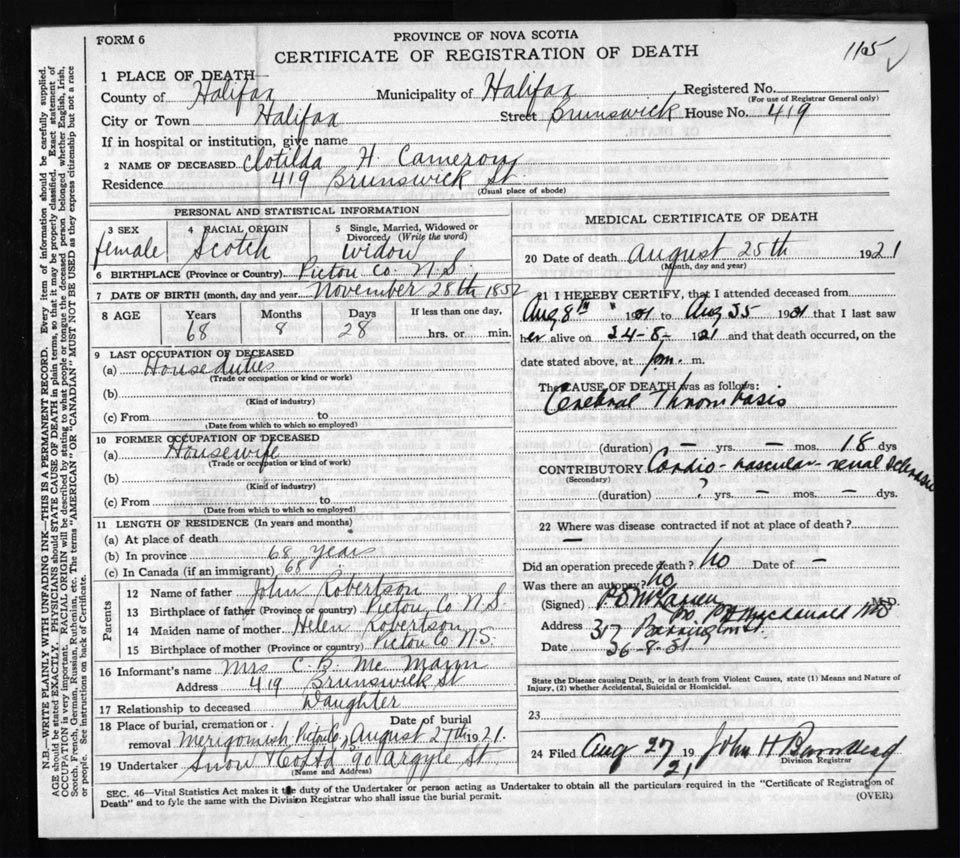 FORM 6
PROVINCE OF NOVA SCOTIA
CERTIFICATE OF REGISTRATION OF DEATH
1105
1 PLACE OF DEATH—
County of Halifax Municipality of Halifax Registered No.
(For use of Registrar General only)
City or Town Halifax Street Brunswick House No. 419
If in hospital or institution, give name
2 NAME OF DECEASED Clotilda H. Cameron
Residence 419 Brunswick St
(Usual place of abode)
PERSONAL AND STATISTICAL INFORMATION
3 SEX 4 RACIAL ORIGIN 5 Single, Married, Widowed or Divorced (Write the word)
female Scotch Widow
6 BIRTHPLACE (Province or Country) Pictou Co. N.S.
7 DATE OF BIRTH (month, day and year) November 28th 1852
8 AGE Years Months Days If less than one day,
68 8 28 hrs. or min.
9 LAST OCCUPATION OF DECEASED
(a) House duties
(Trade or occupation or kind or work)
(b)
(Kind of industry)
(c) From to
(Date from which to which so employed)
10 FORMER OCCUPATION OF DECEASED
(a) Housewife
(Trade or occupation or kind or work)
(b)
(Kind of industry)
(c) From to
(Date from which to which so employed)
11 LENGTH OF RESIDENCE (In years and months)
(a) At place of death
(b) In province 68 years
(c) In Canada (if an immigrant) 68
Parents
12 Name of father John Robertson
13 Birthplace of father (Province or country) Pictou Co N.S.
14 Maiden name of mother Helen Robertson
15 Birthplace of mother (Province or country) Pictou Co N.S.
16 Informant's name Mrs C. B. Mc Mann
Address 419 Brunswick St
17 Relationship to deceased Daughter
18 Place of burial, cremation or removal Date of burial
Merigomish Pictou Co, August 27th 1921.
19 Undertaker Snow & Co Ltd 90 Argyle St
(Name and Address)
MEDICAL CERTIFICATE OF DEATH
20 Date of death August 25th 1921
(Month, day and year)
21 I HEREBY CERTIFY, that I attended deceased from
Aug 8th 1921 to Aug 25 1921 that I last saw
her alive on 24-8- 1921 and that death occurred, on the
date stated above, at m.
The CAUSE OF DEATH was as follows:
Cerebral Thrombosis
(duration) — yrs. — mos. 18 dys
CONTRIBUTORY Cardio-vascular-renal sclerosis
(Secondary)
(duration) ? yrs. — mos. — dys.
22 Where was disease contracted if not at place of death?
—
Did an operation precede death? No Date of —
Was there an autopsy? No
(Signed) M.D.
Address 317 Barrington St.
Date 26-8-21
State the Disease causing Death, or in death from Violent Causes, state (1) Means and Nature of
Injury, (2) whether Accidental, Suicidal or Homicidal.
23
24 Filed Aug 27 1921 John H Barnstead
Division Registrar
SEC. 46—Vital Statistics Act makes it the duty of the Undertaker or person acting as Undertaker to obtain all the particulars required in the "Certificate of Registration of
Death" and to fyle the same with the Division Registrar who shall issue the burial permit.
(OVER)
N.B.—WRITE PLAINLY WITH UNFADING INK—THIS IS A PERMANENT RECORD. Every item of information should be carefully supplied.
AGE should be stated EXACTLY. PHYSICIANS should STATE CAUSE OF DEATH in plain terms, so that it may be properly classified. Exact statement of
OCCUPATION is very important. RACIAL ORIGIN will be described by stating to what people or tongue the deceased person belonged, whether English, Irish,
Scotch, French, German, Russian, Ruthenian, etc. The terms "AMERICAN" OR "CANADIAN" MUST NOT BE USED as they express citizenship but not a race
or people. See instructions on back of Certificate.